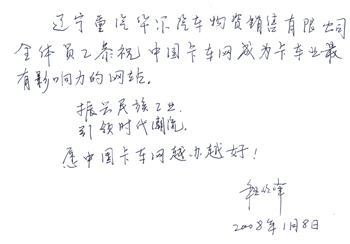 辽宁重汽华尔汽车物资销售有限公司
全体员工恭祝中国卡车网成为卡车业最
有影响力的网站。
振兴民族工业。
引领时代潮流。
愿中国卡车网越办越好！
2008年1月8日